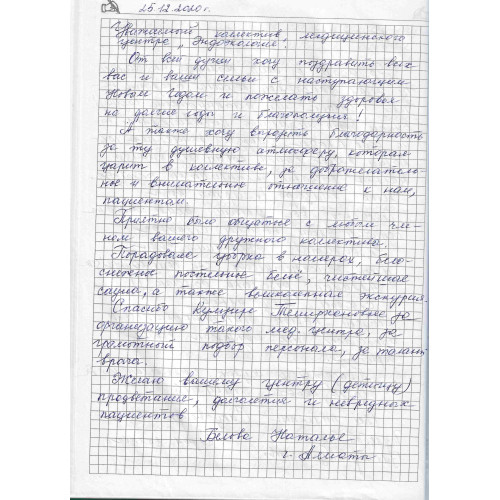 25.12.2020г.
Уважаемый коллектив медицинского
центра „Эндохология".
От всей души хочу поздравить всех
вас и ваши семьи с наступающим
Новым Годом и пожелать здоровья
на долгие годы и благополучия!
А также хочу выразить благодарность
за ту душевную атмосферу, которая
царит в коллективе, за доброжелатель-
ное и внимательное отношение к нам,
пациентам.
Приятно было общаться с любым чле-
ном вашего дружного коллектива.
Порадовала уборка в номерах, бело-
снежное постельное белье, чистейшие
сауна, а также великолепная экскурсия.
Спасибо Темирхановне за
организацию такого мед. центра, за
грамотный подбор персонала, за талант
врача.
Желаю вашему центру (детищу)
процветание, долголетие и невредных
пациентов
Белова Наталья
г. Алматы